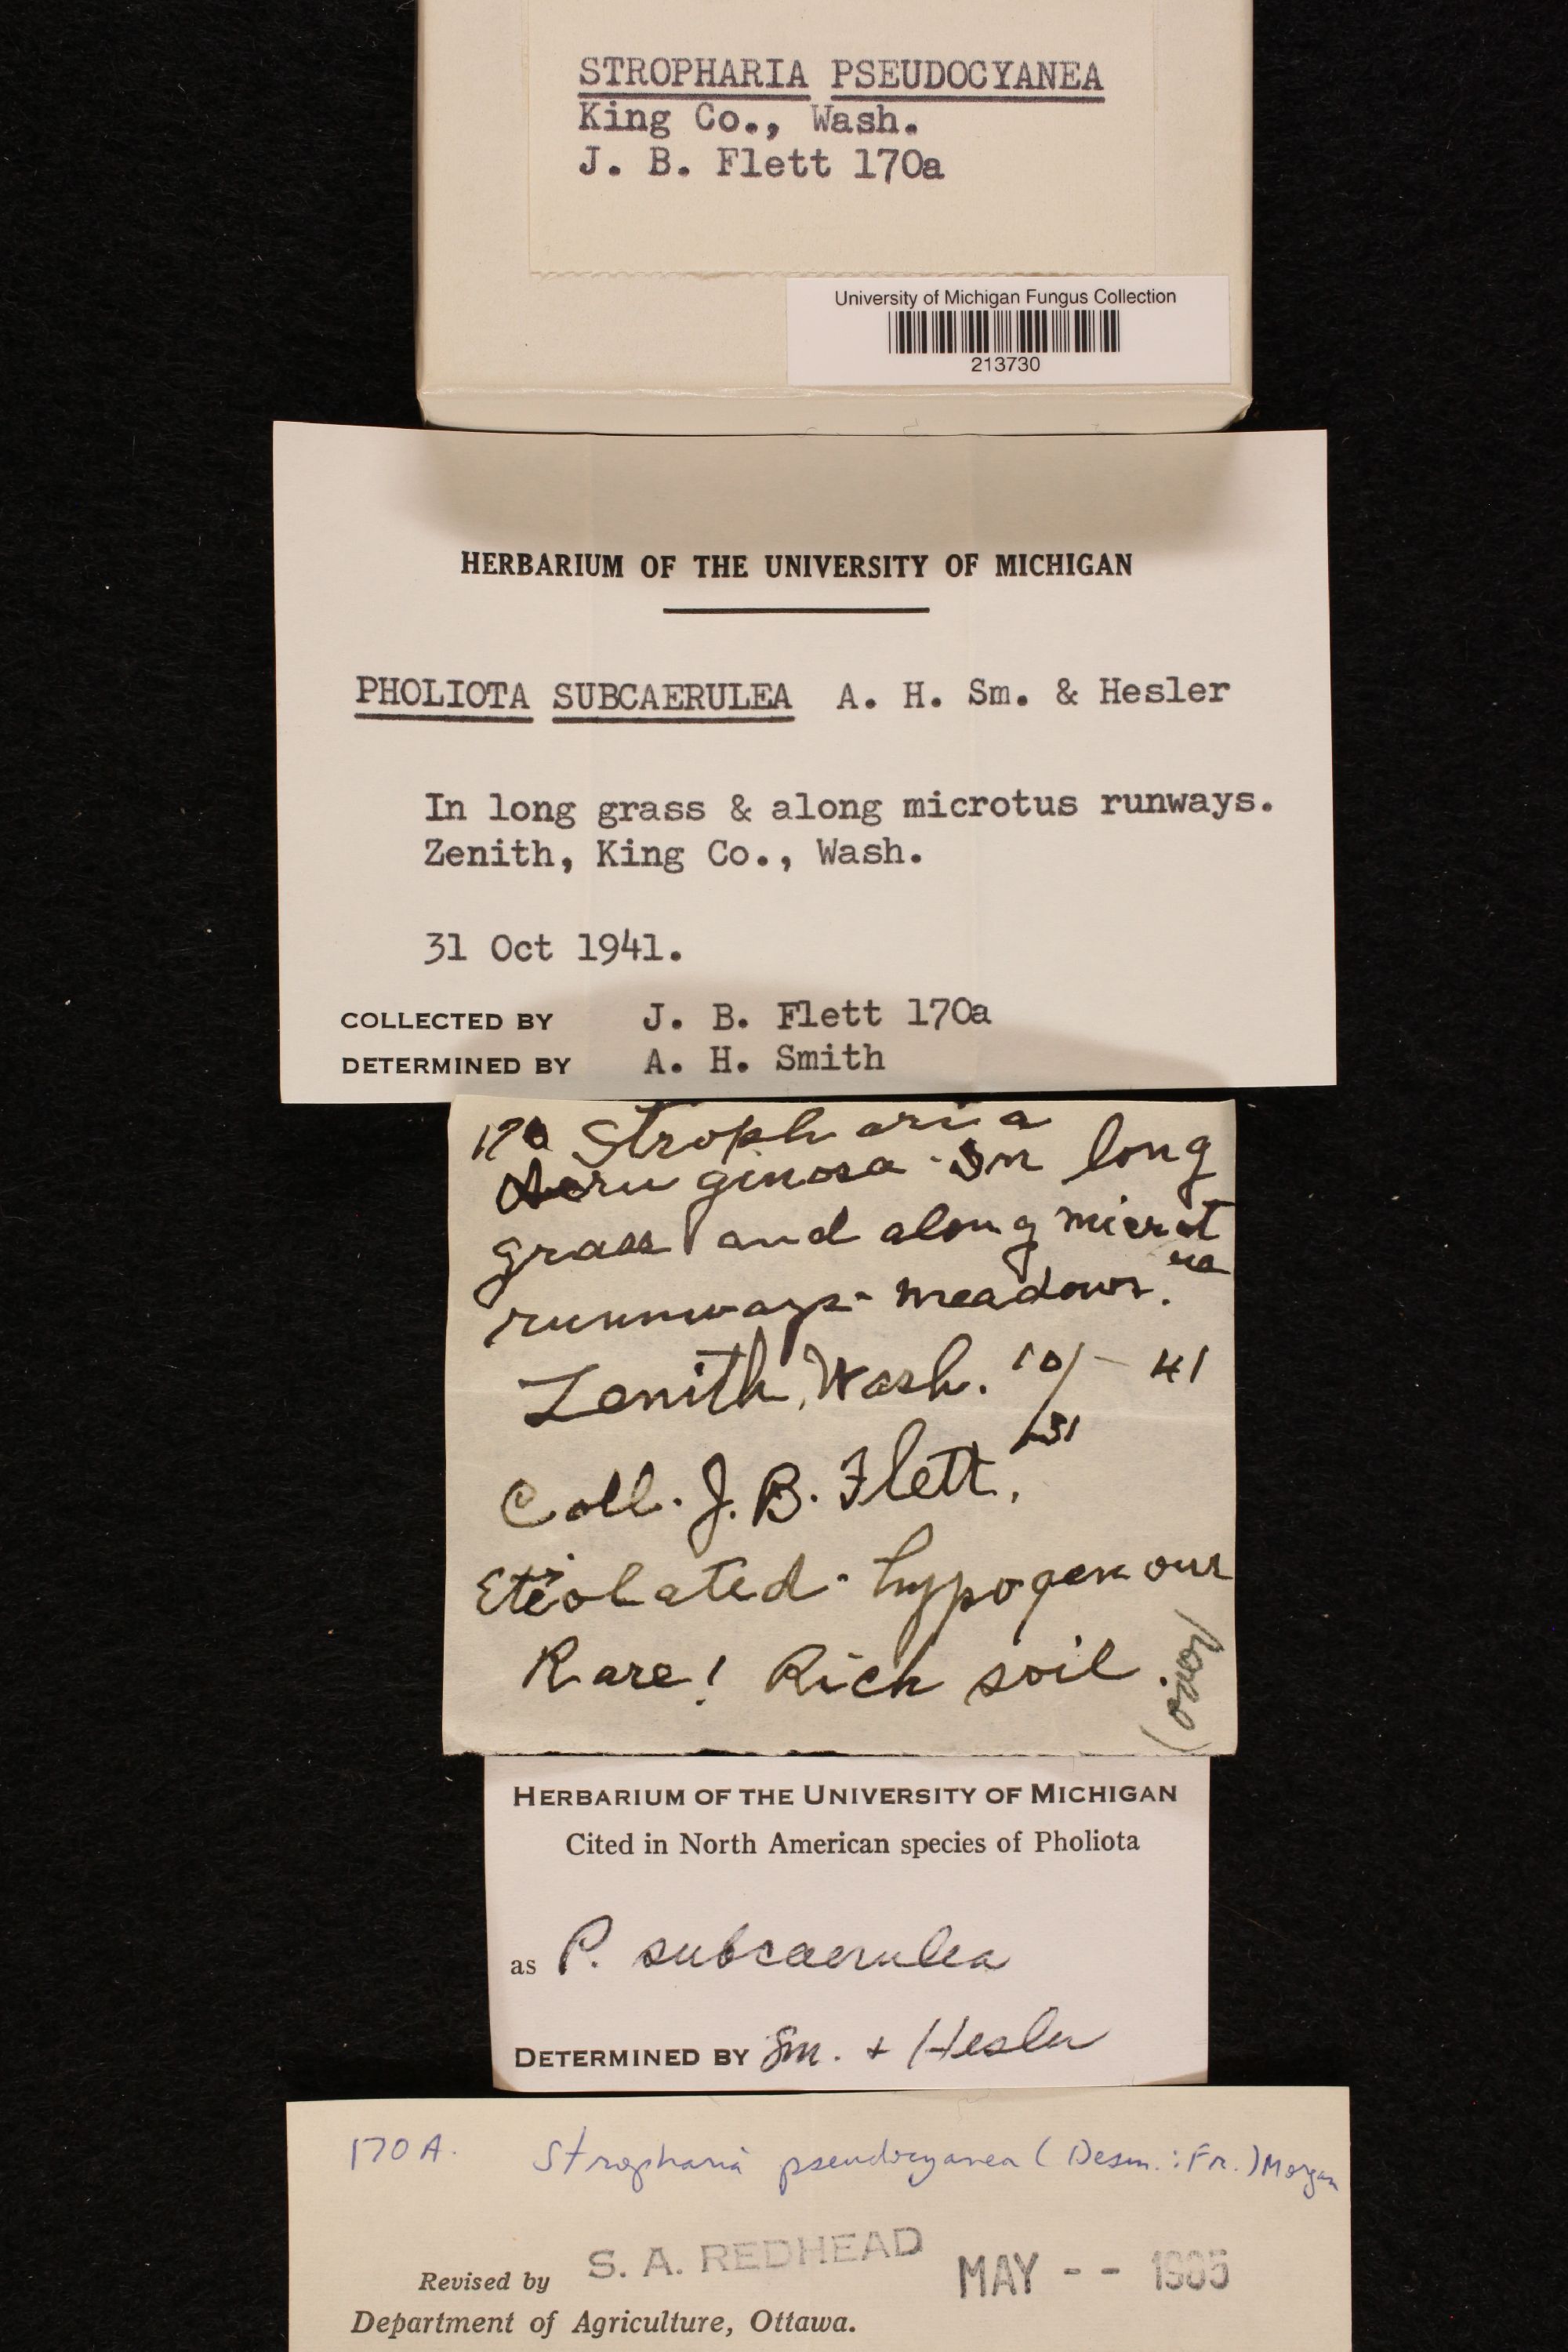 STROPHARIA PSEUDOCYANEA
King Co., Wash.
J. B. Flett 170a
University of Michigan Fungus Collection
213730
HERBARIUM OF THE UNIVERSITY OF MICHIGAN
PHOLIOTA SUBCAERULEA A. H. Sm. & Hesler
In long grass & along microtus runways.
Zenith, King Co., Wash.
31 Oct 1941.
COLLECTED BY J. B. Flett 170a
DETERMINED BY A. H. Smith
Stropharia
Aeruginosa - In long
grass and along microt
us
runways - meadows.
Zenith, Wash. 10/ - 41
31
Coll. J. B. Flett.
Etiolated - hypogenous
Rare! Rich soil.
(over)
HERBARIUM OF THE UNIVERSITY OF MICHIGAN
Cited in North American species of Pholiota
as P. subcaerulea
DETERMINED BY Sm. + Hesler
170A. Stropharia pseudocyanea (Desm.:Fr.) Morgan
Revised by S. A. REDHEAD MAY -- 1985
Department of Agriculture, Ottawa.